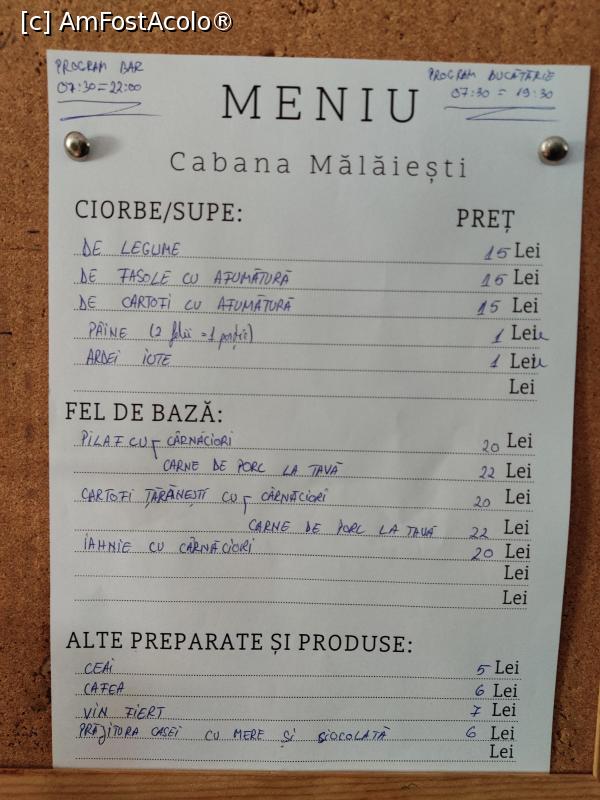 [c] AmFostAcolo®
PROGRAM BAR
07:30 = 22:00
PROGRAM BUCĂTĂRIE
07:30 = 19:30
MENIU
Cabana Mălăiești
CIORBE/SUPE: PREȚ
DE LEGUME 15 Lei
DE FASOLE CU AFUMĂTURĂ 15 Lei
DE CARTOFI CU AFUMĂTURĂ 15 Lei
PÂINE (2 felii = 1 porție) 1 Leu
ARDEI IUTE 1 Leu
Lei
FEL DE BAZĂ:
PILAF CU CÂRNĂCIORI 20 Lei
CARNE DE PORC LA TAVĂ 22 Lei
CARTOFI ȚĂRĂNEȘTI CU CÂRNĂCIORI 20 Lei
CARNE DE PORC LA TAVĂ 22 Lei
IAHNIE CU CÂRNĂCIORI 20 Lei
Lei
Lei
ALTE PREPARATE ȘI PRODUSE:
CEAI 5 Lei
CAFEA 6 Lei
VIN FIERT 7 Lei
PRĂJITURA CASEI CU MERE ȘI CIOCOLATĂ 6 Lei
Lei